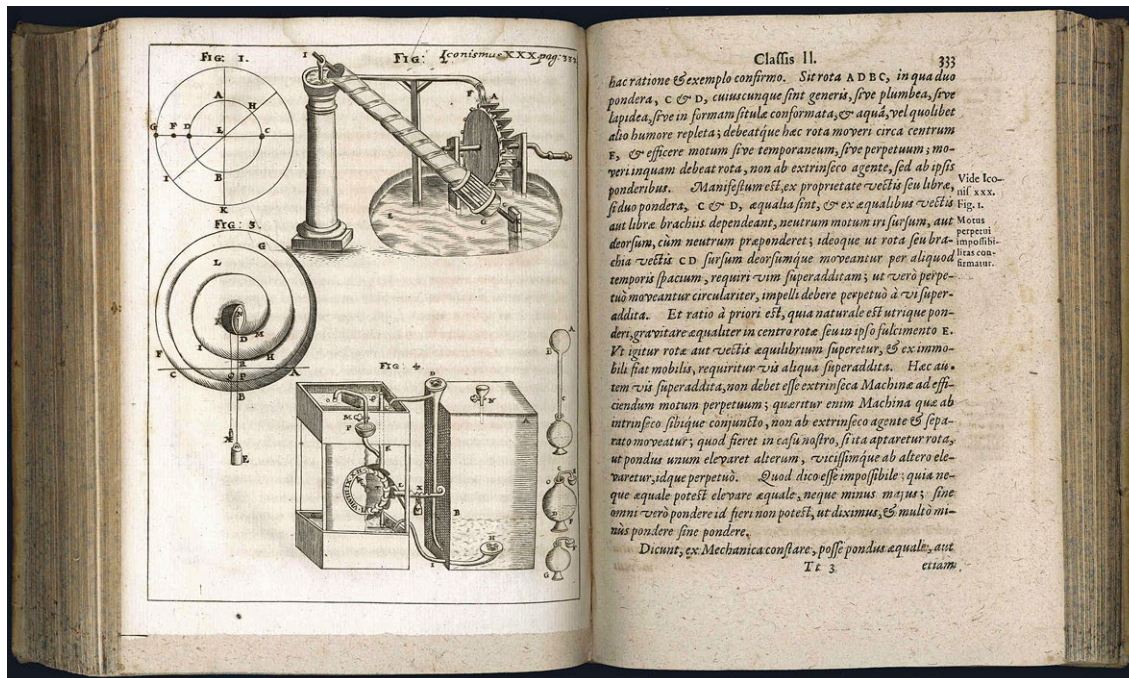 FIG: 1.
FIG:
Iconismus XXX pag: 33
FIG: 3.
FIG: 4.
Classis II.
333
hac ratione & exemplo confirmo. Sit rota ADBC, in qua duo
pondera, C & D, cuiuscunque sint generis, sive plumbea, sive
lapidea, sive in formam situlæ conformata, & aquâ, vel quolibet
alio humore repleta; debeatque hæc rota moveri circa centrum
E, & efficere motum sive temporaneum, sive perpetuum; mo-
veri inquam debeat rota, non ab extrinseco agente, sed ab ipsis
ponderibus. Manifestum est, ex proprietate vectis seu libræ,
si duo pondera, C & D, æqualia sint, & ex æqualibus vectis
aut libræ brachiis dependeant, neutrum motum iri sursum, aut
deorsum, cùm neutrum præponderet; ideoque ut rota seu bra-
chia vectis CD sursum deorsumque moveantur per aliquod
temporis spacium, requiri vim superadditam; ut verò perpe-
tuò moveantur circulariter, impelli debere perpetuò à vi super-
addita. Et ratio à priori est, quia naturale est utrique pon-
deri, gravitare æqualiter in centro rotæ seu in ipso fulcimento E.
Vt igitur rotæ aut vectis æquilibrium superetur, & ex immo-
bili fiat mobilis, requiritur vis aliqua superaddita. Hæc au-
tem vis superaddita, non debet esse extrinseca Machinæ ad effi-
ciendum motum perpetuum; quæritur enim Machina quæ ab
intrinseco sibique conjuncto, non ab extrinseco agente & sepa-
rato moveatur; quod fieret in casu nostro, si ita aptaretur rota,
ut pondus unum elevaret alterum, vicissimque ab altero ele-
varetur, idque perpetuò. Quod dico esse impossibile: quia ne-
que æquale potest elevare æquale, neque minus majus; sine
omni verò pondere id fieri non potest, ut diximus, & multò mi-
nùs pondere sine pondere.
Dicunt, ex Mechanica constare, posse pondus æquale, aut
Tt 3
etiam
Vide Ico-
nis. XXX.
Fig. 1.
Motus
perpetui
impossibi-
litas con-
firmatur.